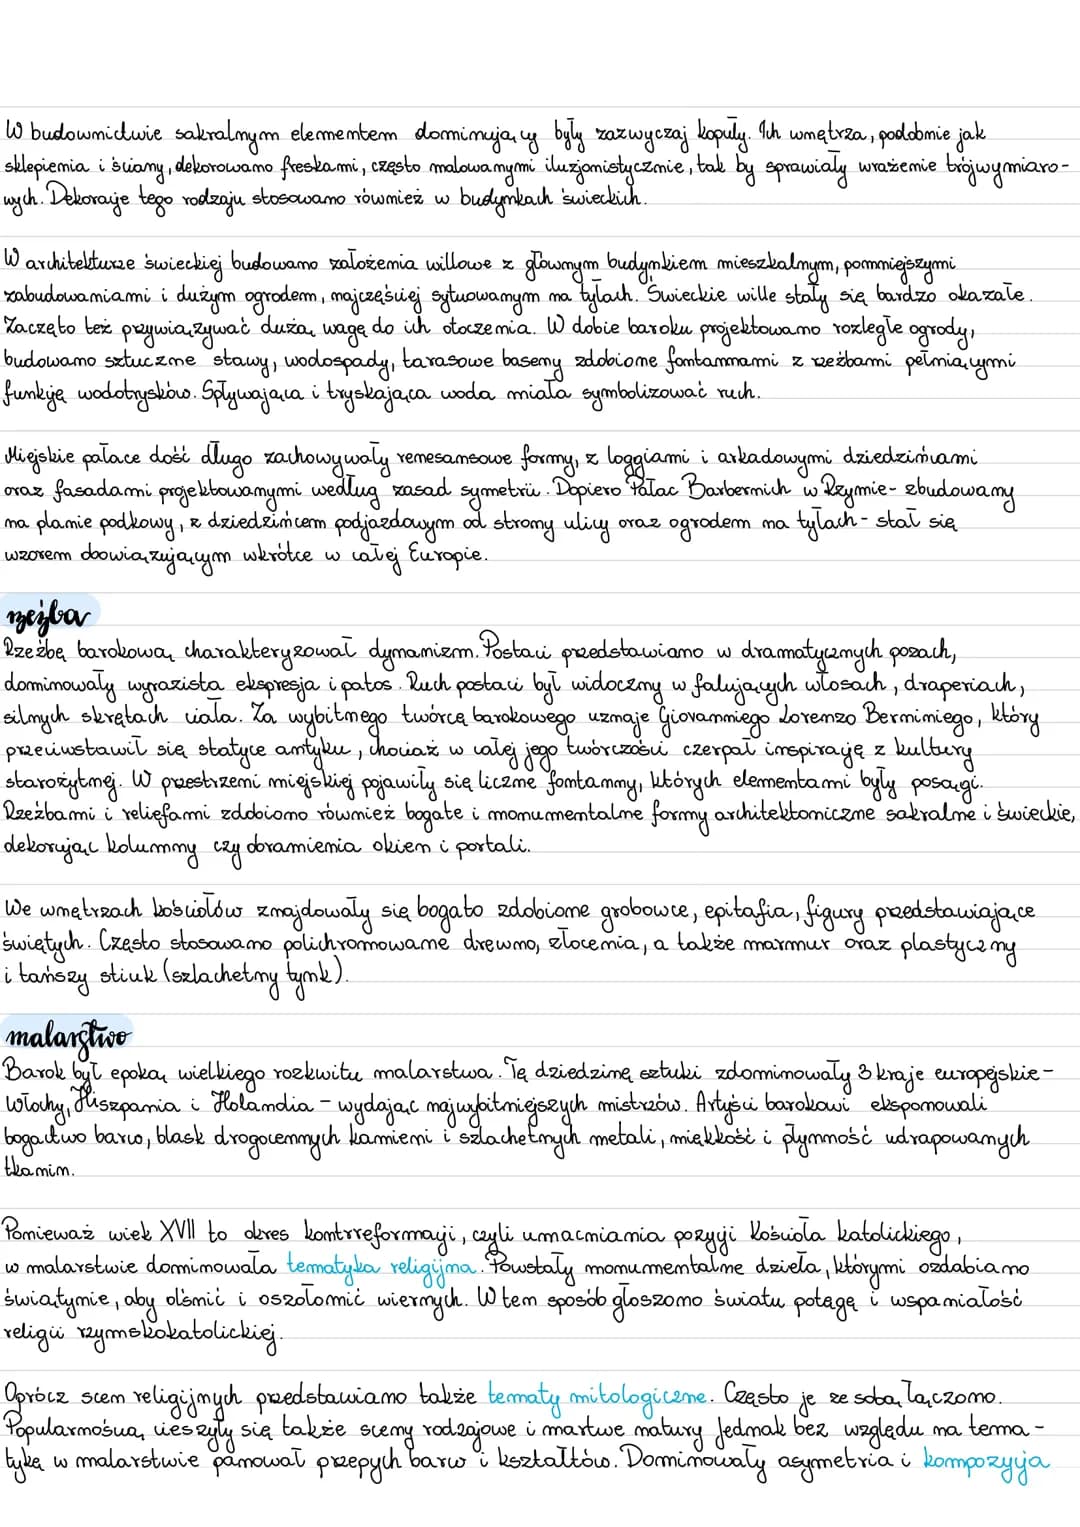 W budownictwie sakralnym elementem dominującym były zazwyczaj kopuły. Ich wnętrza, podobnie jak
sklepienia i ściany, dekorowano freskami, często malowanymi iluzjonistycznie, tak by sprawiały wrażenie trójwymiaro-
wych. Dekoracje tego rodzaju stosowano również w budynkach świeckich.
W architekturze świeckiej budowano założenia willowe z głównym budynkiem mieszkalnym, pomniejszymi
zabudowaniami i dużym ogrodem, najczęściej sytuowanym na tyłach. Świeckie wille stały się bardzo okazałe.
Zaczęto też przywiązywać dużą wagę do ich otoczenia. W dobie baroku projektowano rozległe ogrody,
budowano sztuczne stawy, wodospady, tarasowe baseny zdobione fontannami z rzeźbami pełniącymi
funkcję wodotrysków. Spływająca i tryskająca woda miała symbolizować ruch.
Miejskie pałace dość długo zachowywały renesansowe formy, z loggiami i arkadowymi dziedzińcami
oraz fasadami projektowanymi według zasad symetrii. Dopiero Pałac Barbernich w Rzymie- zbudowany
na planie podkowy, z dziedzińcem podjazdowym od strony ulicy oraz ogrodem na tyłach- stał się
wzorem obowiązującym wkrótce w całej Europie.
rzeźba
Rzeźbę barokową charakteryzował dynamizm. Postaci przedstawiano w dramatycznych pozach,
dominowały wyrazista ekspresja i patos. Ruch postaci był widoczny w falujących włosach, draperiach,
silnych skrętach ciała. Za wybitnego twórcę barokowego uznaje Giovanniego Lorenzo Berniniego, który
przeciwstawił się statyce antyku, chociaż w całej jego twórczości czerpał inspirację z kultury
starożytnej. W przestrzeni miejskiej pojawiły się liczne fontanny, których elementami były posągi.
Rzeźbami i reliefami zdobiono również bogate i monumentalne formy architektoniczne sakralne i świeckie,
dekorując kolumny czy obramienia okien i portali.
We wnętrzach kościołów znajdowały się bogato zdobione grobowce, epitafia, figury przedstawiające
świętych. Często stosowano polichromowane drewno, złocenia, a także marmur oraz plastyczny
i tańszy stiuk (szlachetny tynk).
malarstwo
Barok był epoką wielkiego rozkwitu malarstwa. Tę dziedzinę sztuki zdominowały 3 kraje europejskie-
Włochy, Hiszpania i Holandia - wydając najwybitniejszych mistrzów. Artyści barokowi eksponowali
bogactwo barw, blask drogocennych kamieni i szlachetnych metali, miękkość i płynność udrapowanych
tkanin.
Ponieważ wiek XVII to okres kontrreformacji, czyli umacniania pozycji Kościoła katolickiego,
w malarstwie dominowała tematyka religijna. Powstały monumentalne dzieła, którymi ozdabiano
świątynie, aby olśnić i oszołomić wiernych. W ten sposób głoszono światu potęgę i wspaniałość
religii rzymskokatolickiej.
Oprócz scen religijnych przedstawiano także tematy mitologiczne. Często je ze sobą łączono.
Popularnością cieszyły się także sceny rodzajowe i martwe natury Jednak bez względu na tema-
tykę w malarstwie panował przepych barw i kształtów. Dominowały asymetria i kompozycja